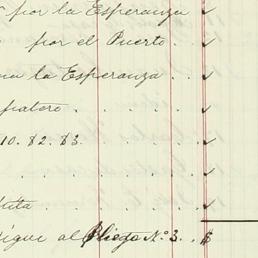 por la Esperanza ✓
por el Puerto . . ✓
la Esperanza . . ✓
. . . ✓
10. 82. 83. ✓
. . . . ✓
. . . . ✓
sigue al Pliego Nº 3. $